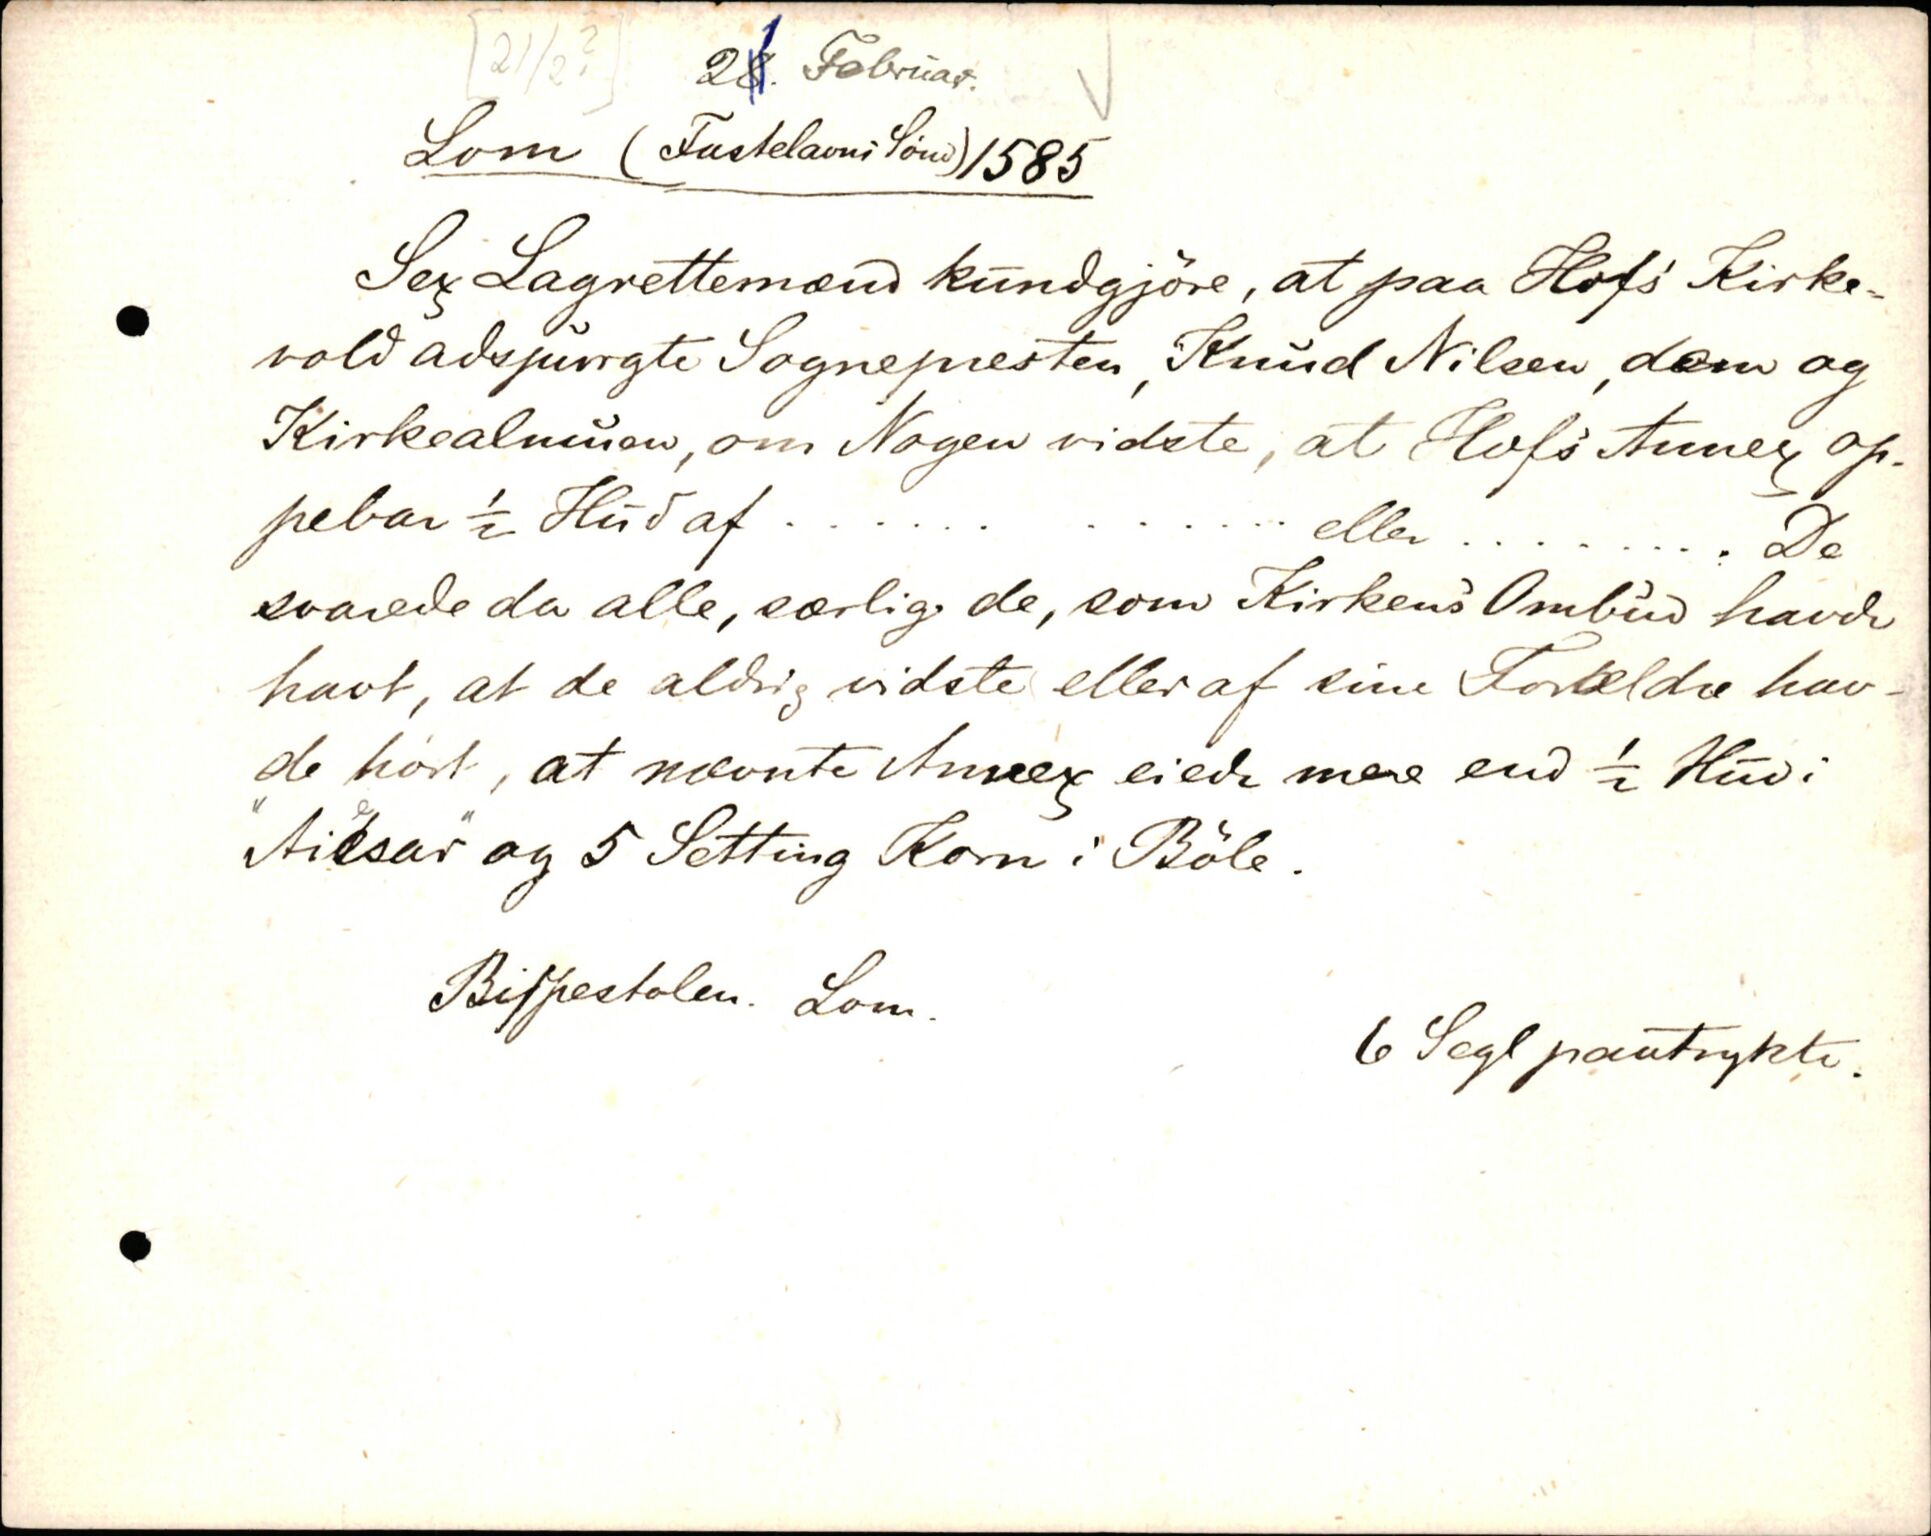 [21/2?] 21. Februar.
Lom (Fastelavns Sönd) 1585
Sex Lagrettemænd kundgjöre, at paa Hofs Kirke-
vold adspurgte Sognepresten, Knud Nilsen, dem og
Kirkealmuen, om Nogen vidste, at Hofs Annex op-
pebar ½ Hud af . . . . . . . . . . . . . . eller . . . . . . . . . De
svarede da alle, særlig de, som Kirkens Ombud havde
havt, at de aldrig vidste eller af sine Forældre hav-
de hört, at nævnte Annex eiede mere end ½ Hud i
og 5 Setting Korn i Böle.
Bispestolen. Lom.
6 Segl paatrykte.